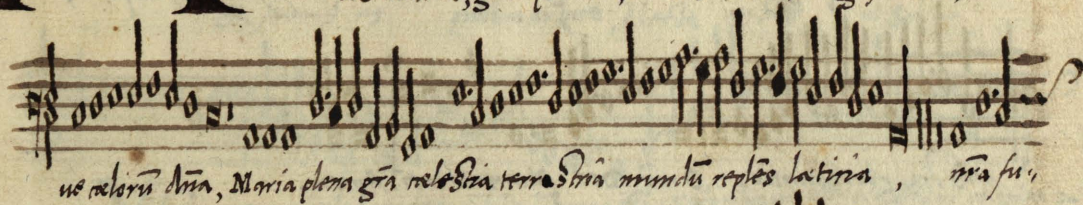 ue cœlorũ dña, Maria plena grã cœlestia terrestriã mundũ reples lætitia, nr̃a fu-